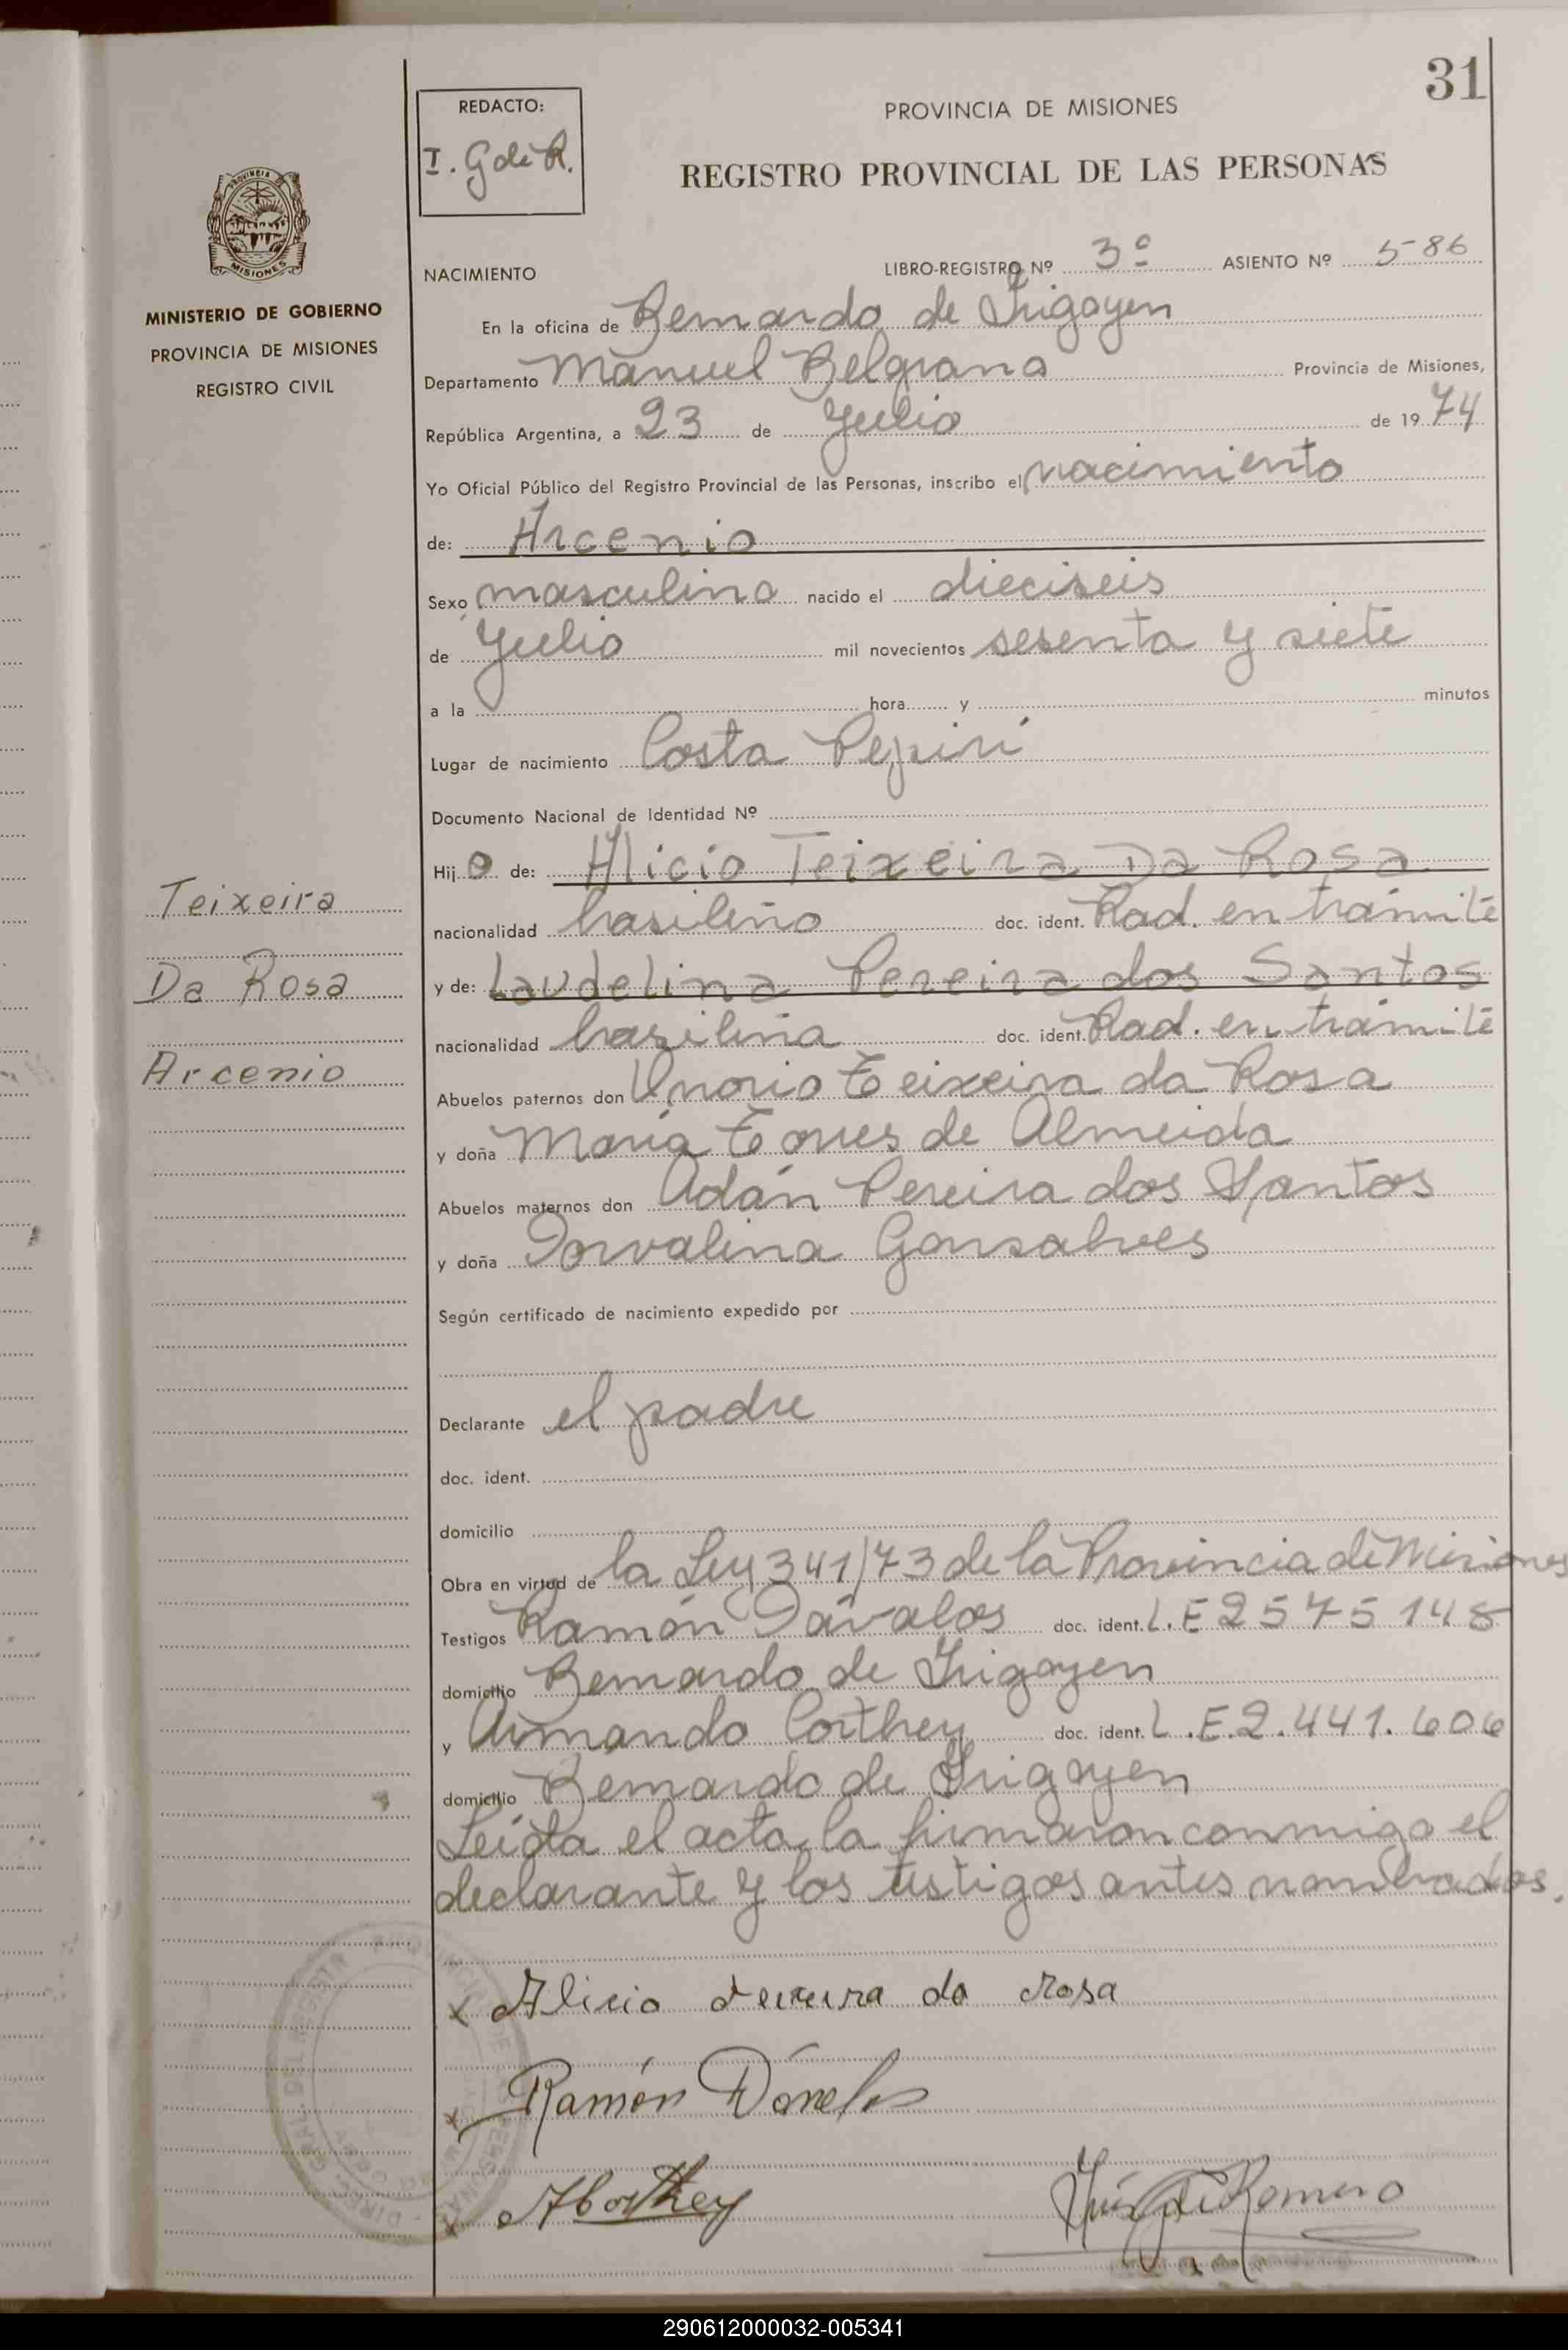 31
REDACTO:
I. G de R.
PROVINCIA DE MISIONES
REGISTRO PROVINCIAL DE LAS PERSONAS
PROVINCIA DE MISIONES
MINISTERIO DE GOBIERNO
PROVINCIA DE MISIONES
REGISTRO CIVIL
NACIMIENTO LIBRO-REGISTRO Nº 3º ASIENTO Nº 586
En la oficina de Bernardo de Irigoyen
Departamento Manuel Belgrano Provincia de Misiones,
República Argentina, a 23 de Julio de 1974
Yo Oficial Público del Registro Provincial de las Personas, inscribo el nacimiento
de: Arcenio
Sexo masculino nacido el dieciseis
de Julio mil novecientos sesenta y siete
a la hora y minutos
Lugar de nacimiento Costa Pepirí
Documento Nacional de Identidad Nº
Hijo de: Alicio Teixeira Da Rosa
nacionalidad brasileño doc. ident. Rad. en trámite
y de: Laudelina Pereira dos Santos
nacionalidad brasileña doc. ident. Rad. en trámite
Abuelos paternos don Onorio Teixeira da Rosa
y doña María Torres de Almeida
Abuelos maternos don Adán Pereira dos Santos
y doña Dorvalina Gonsalves
Según certificado de nacimiento expedido por
Declarante el padre
doc. ident.
domicilio
Obra en virtud de la Ley 341/73 de la Provincia de Misiones
Testigos Ramón Dávalos doc. ident. L.E 2575148
domicilio Bernardo de Irigoyen
y Armando Corthey doc. ident. L.E.2.441.606
domicilio Bernardo de Irigoyen
Leída el acta, la firmaron conmigo el
declarante y los testigos antes nombrados.
Teixeira
Da Rosa
Arcenio
x Alicio da rosa
x Ramón Dávalos
x ACorthey
de Romero
290612000032-005341